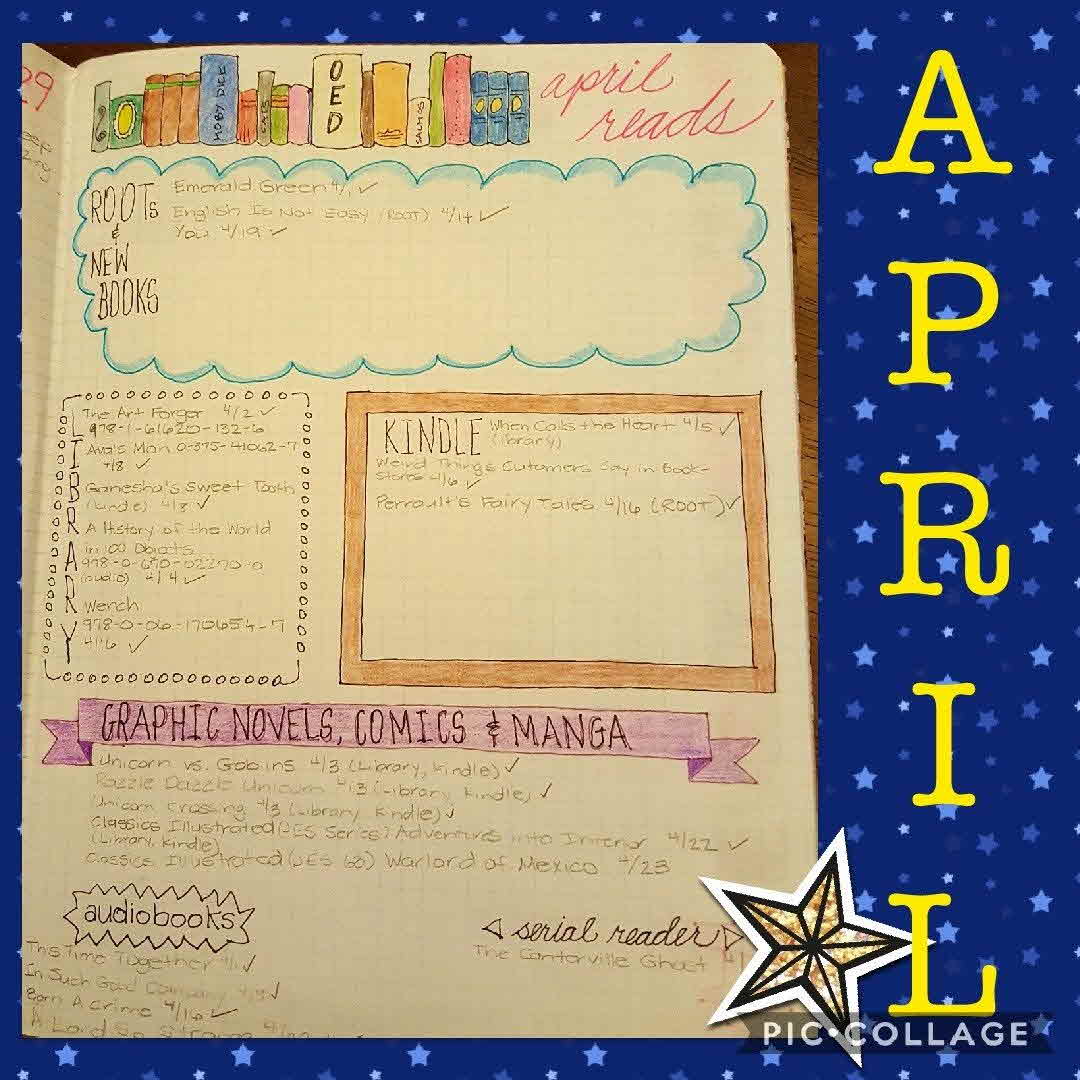 29
MOBY DICK
CATS
OED
SALMS
april
reads
ROOTs
&
NEW
BOOKS
Emerald Green 4/1 ✓
English Is Not Easy (ROOT) 4/14 ✓
You 4/19 ✓
LIBRARY
The Art Forger 4/2 ✓
978-1-61620-132-6
Ava's Man 0-375-41062-7
4/8 ✓
Ganesha's Sweet Tooth
(Kindle) 4/3 ✓
A History of the World
in 100 Objects
978-0-670-02270-0
(audio) 4/4 ✓
Wench
978-0-06-170654-7
4/16 ✓
KINDLE
When Calls the Heart 4/5 ✓
(library)
Weird Things Customers Say in Book-
stores 4/6 ✓
Perrault's Fairy Tales 4/16 (ROOT) ✓
GRAPHIC NOVELS, COMICS & MANGA
Unicorn vs. Goblins 4/3 (Library, Kindle) ✓
Razzle Dazzle Unicorn 4/3 (Library, Kindle) ✓
Unicorn Crossing 4/3 (Library, Kindle) ✓
Classics Illustrated (JES Series) Adventures into Interior 4/22 ✓
(Library, Kindle)
Classics Illustrated (JES 63) Warlord of Mexico 4/23
audiobooks
This Time Together 4/1 ✓
In Such Good Company 4/9 ✓
Born A Crime 4/16 ✓
A Land So Strange
serial reader
The Canterville Ghost
APRIL
PIC•COLLAGE